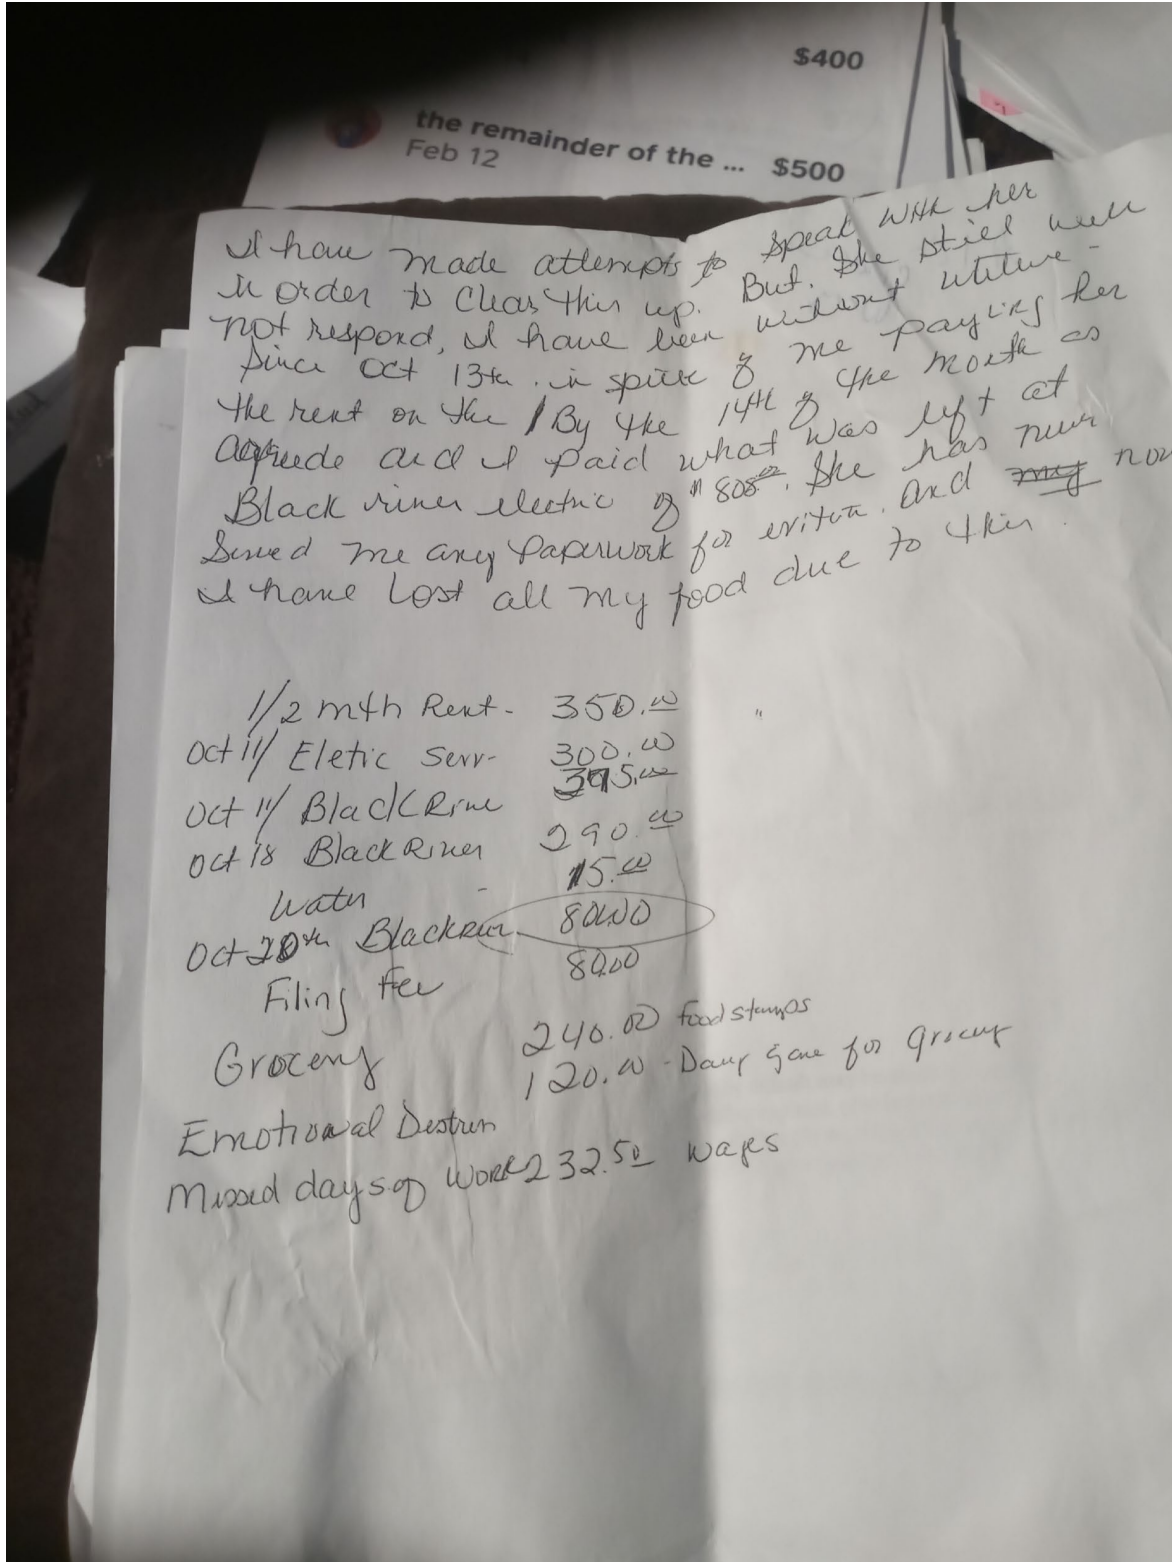 $400
the remainder of the ... $500
Feb 12
I have made attempts to speak with her
in order to clear this up. But. She still will
not respond, I have been without
since Oct 13th. in spite of me paying her
the rent on the / By the 14th of the month as
and I paid what was left at
Black river electric of $ 808.00. She has
Served me any Paperwork for And my now
I have Lost all my food due to this.
1/2 mth Rent - 350.00
Oct 11/ Eletic Serv- 300.00
Oct 11/ Black River 395.00
Oct 18 Black River 290.00
Water - 15.00
Oct 20th Blackriver
Filing Fee 80.00
Grocery 240.00 food stamps
120.00 - gave for Grocery
Emotional Distress
Missed days of work 232.50 wages